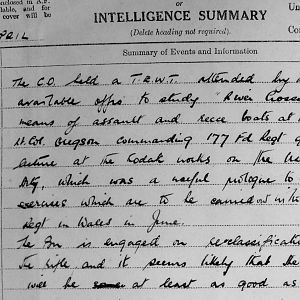 enclosed in A.F.
lable, and for
cover will be
or
INTELLIGENCE SUMMARY
(Delete heading not required).
Un
Co
PRIL
Summary of Events and Information
The C.O. held a T.E.W.T. attended by
available offrs to study "River Cross
means of assault and recce boats at
Lt. Col. Gregson commanding 177 Fd Regt
lecture at the Kodak works on the
Arty, which was a useful prologue to
exercises which are to be carried out in th
Regt in Wales in June.
The Bn is engaged on reclassificati
the rifle and it seems likely that the
will be at least as good as